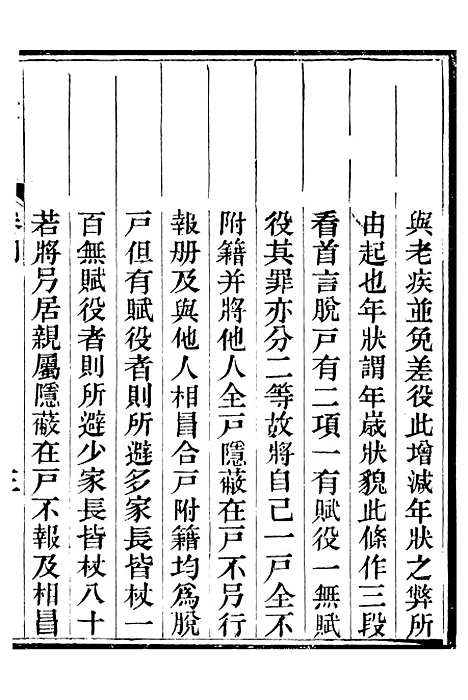 與老疾並免差役此增減年狀之弊所
由起也年狀謂年歲狀貌此條作三段
看首言脫戸有二項一有賦役一無賦
役其罪亦分二等故將自己一戸全不
附籍并將他人全戸隱蔽在戸不另行
報册及與他人相冒合戸附籍均爲脫
戸但有賦役者則所避多家長皆杖一
百無賦役者則所避少家長皆杖八十
若將另居親屬隱蔽在戸不報及相冒